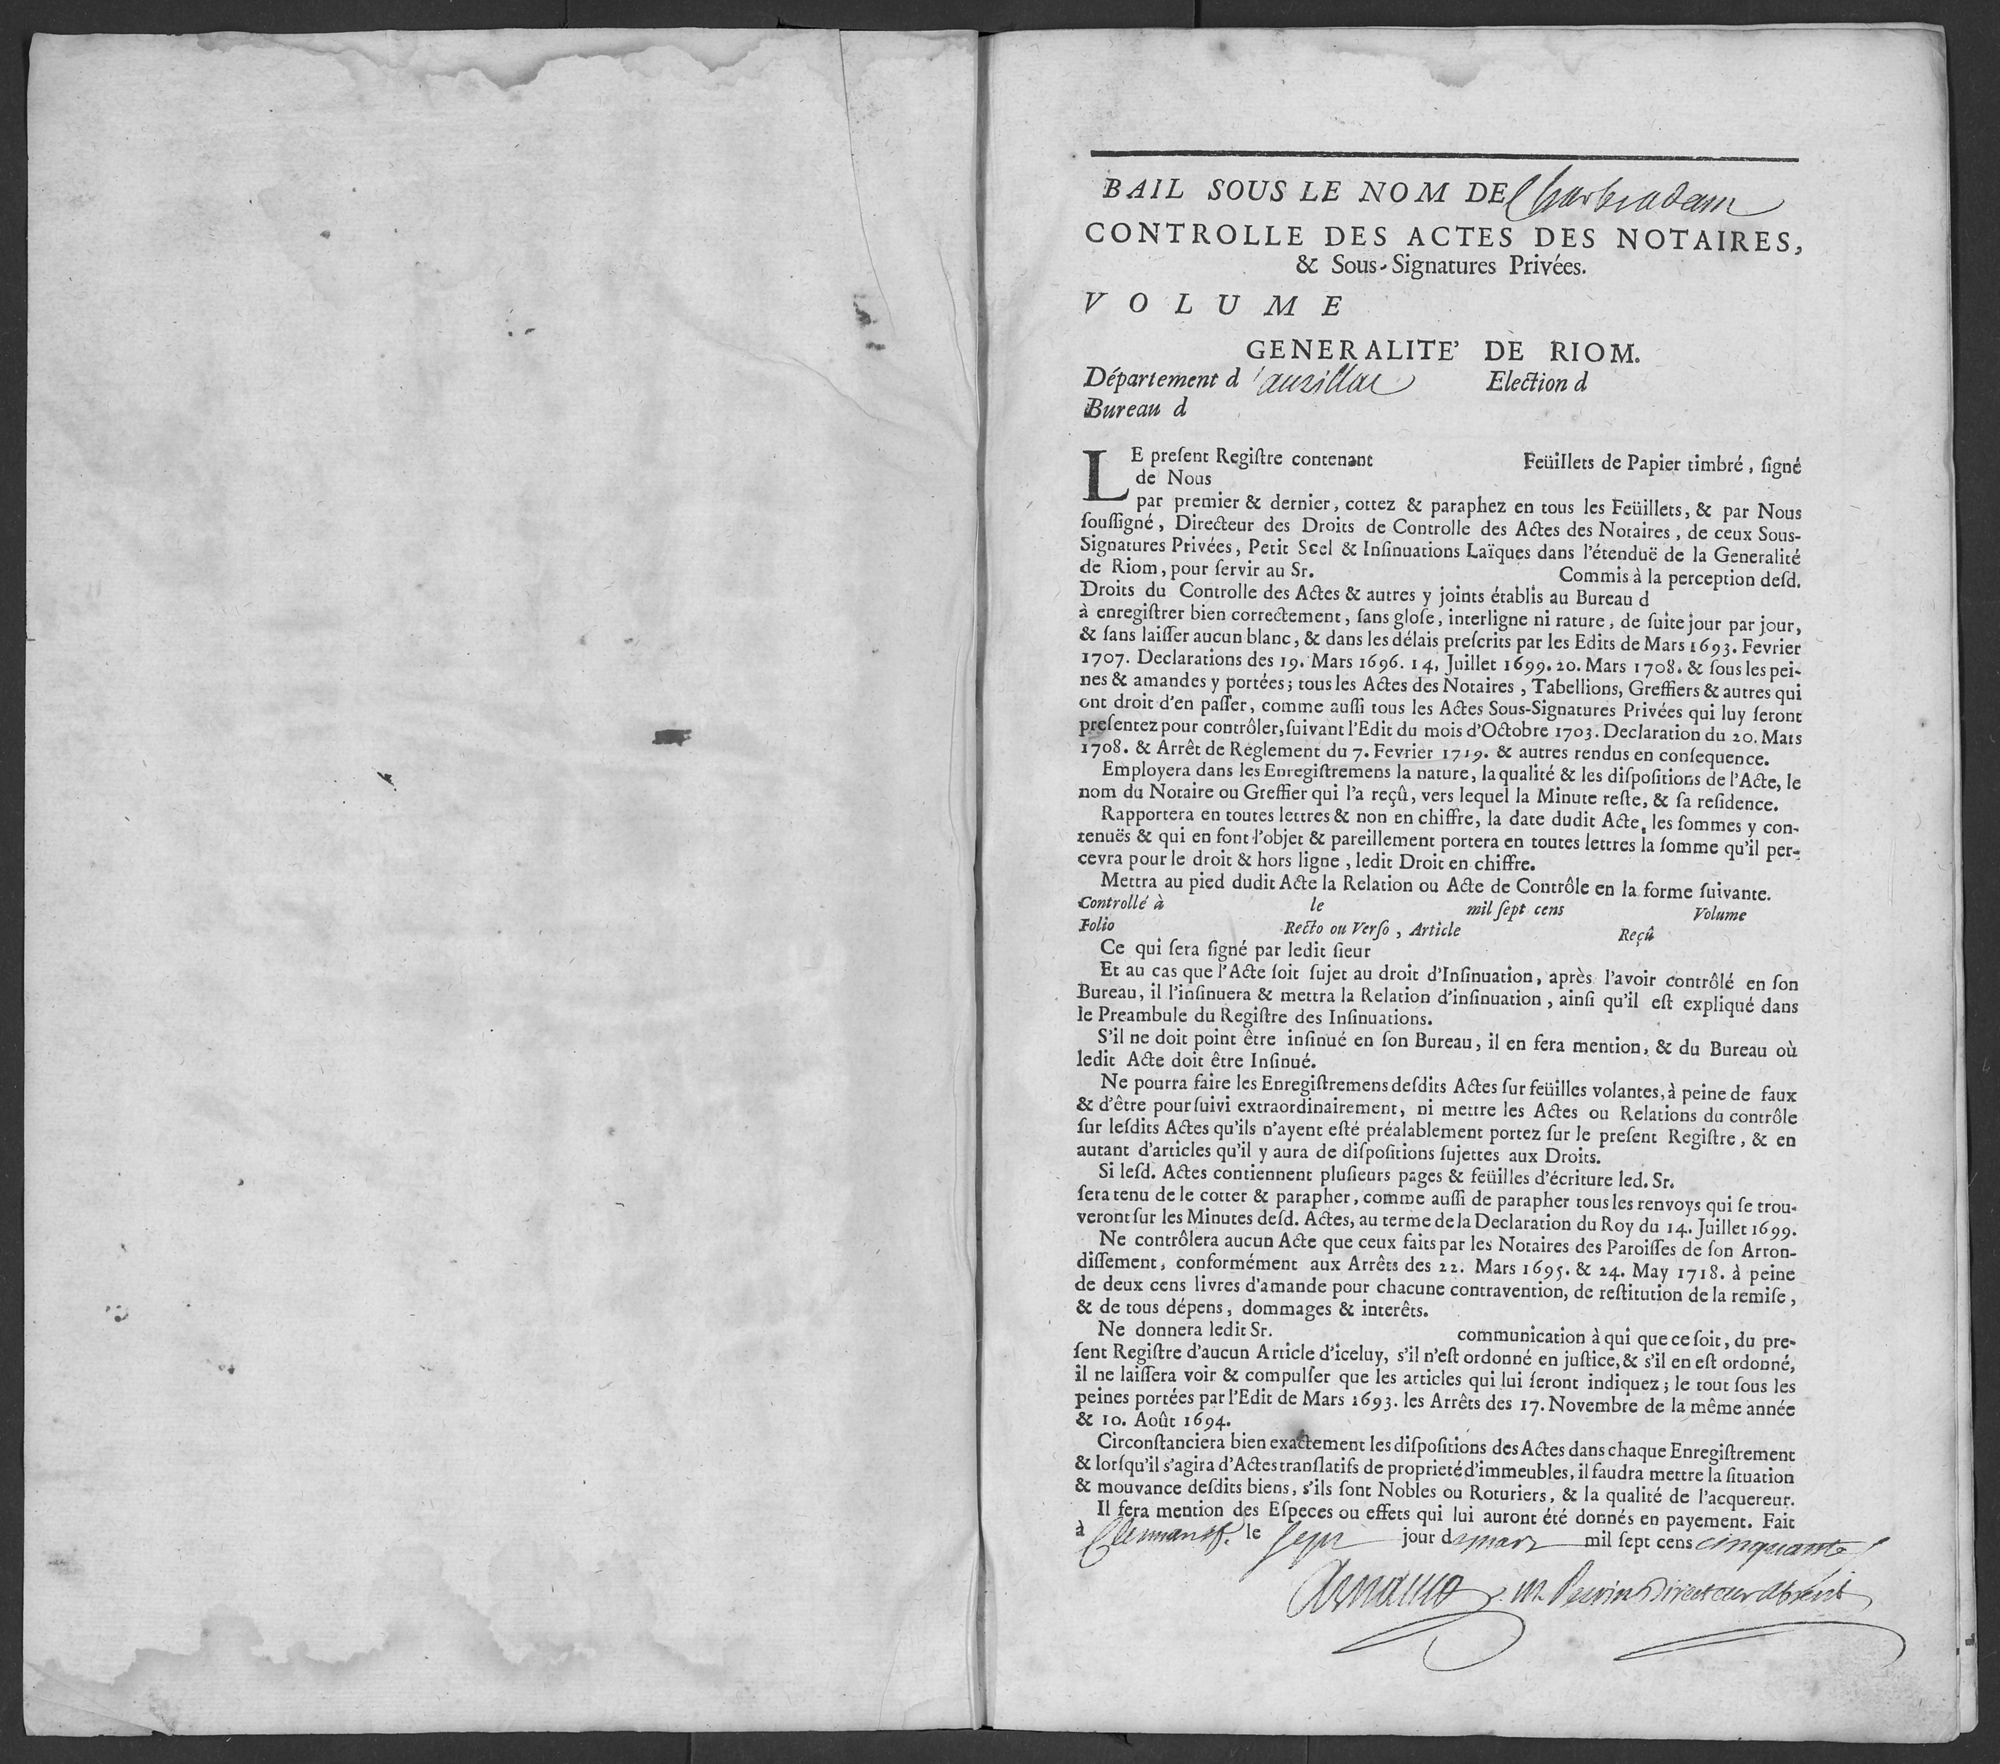 BAIL SOUS LE NOM DE
CONTROLLE DES ACTES DES NOTAIRES,
& Sous-Signatures Privées.
VOLUME
GENERALITE' DE RIOM.
Département d'aurillac Election d
Bureau d
LE preſent Regiſtre contenant Feüillets de Papier timbré, ſigné
de Nous
par premier & dernier, cottez & paraphez en tous les Feüillets, & par Nous
ſouſſigné, Directeur des Droits de Controlle des Actes des Notaires, de ceux Sous-
Signatures Privées, Petit Scel & Inſinuations Laïques dans l'étenduë de la Generalité
de Riom, pour ſervir au Sr. Commis à la perception deſd.
Droits du Controlle des Actes & autres y joints établis au Bureau d
à enregiſtrer bien correctement, ſans gloſe, interligne ni rature, de ſuite jour par jour,
& ſans laiſſer aucun blanc, & dans les délais preſcrits par les Edits de Mars 1693. Fevrier
1707. Declarations des 19. Mars 1696. 14. Juillet 1699. 20. Mars 1708. & ſous les pei-
nes & amandes y portées; tous les Actes des Notaires, Tabellions, Greffiers & autres qui
ont droit d'en paſſer, comme auſſi tous les Actes Sous-Signatures Privées qui luy ſeront
preſentez pour contrôler, ſuivant l'Edit du mois d'Octobre 1703. Declaration du 20. Mars
1708. & Arrêt de Réglement du 7. Fevrier 1719. & autres rendus en conſequence.
Employera dans les Enregiſtremens la nature, la qualité & les diſpoſitions de l'Acte, le
nom du Notaire ou Greffier qui l'a reçû, vers lequel la Minute reſte, & ſa reſidence.
Rapportera en toutes lettres & non en chiffre, la date dudit Acte, les ſommes y con-
tenuës & qui en font l'objet & pareillement portera en toutes lettres la ſomme qu'il per-
cevra pour le droit & hors ligne, ledit Droit en chiffre.
Mettra au pied dudit Acte la Relation ou Acte de Contrôle en la forme ſuivante.
Controllé à le mil ſept cens Volume
Folio Recto ou Verſo, Article Reçû
Ce qui ſera ſigné par ledit ſieur
Et au cas que l'Acte ſoit ſujet au droit d'Inſinuation, après l'avoir contrôlé en ſon
Bureau, il l'inſinuera & mettra la Relation d'inſinuation, ainſi qu'il eſt expliqué dans
le Preambule du Regiſtre des Inſinuations.
S'il ne doit point être inſinué en ſon Bureau, il en fera mention, & du Bureau où
ledit Acte doit être Inſinué.
Ne pourra faire les Enregiſtremens deſdits Actes ſur feüilles volantes, à peine de faux
& d'être pourſuivi extraordinairement, ni mettre les Actes ou Relations du contrôle
ſur leſdits Actes qu'ils n'ayent eſté préalablement portez ſur le preſent Regiſtre, & en
autant d'articles qu'il y aura de diſpoſitions ſujettes aux Droits.
Si leſd. Actes contiennent pluſieurs pages & feüilles d'écriture led. Sr.
ſera tenu de le cotter & parapher, comme auſſi de parapher tous les renvoys qui ſe trou-
veront ſur les Minutes deſd. Actes, au terme de la Declaration du Roy du 14. Juillet 1699.
Ne contrôlera aucun Acte que ceux faits par les Notaires des Paroiſſes de ſon Arron-
diſſement, conformément aux Arrêts des 22. Mars 1695. & 24. May 1718. à peine
de deux cens livres d'amande pour chacune contravention, de reſtitution de la remiſe,
& de tous dépens, dommages & interêts.
Ne donnera ledit Sr. communication à qui que ce ſoit, du pre-
ſent Regiſtre d'aucun Article d'iceluy, s'il n'eſt ordonné en juſtice, & s'il en eſt ordonné,
il ne laiſſera voir & compulſer que les articles qui lui ſeront indiquez; le tout ſous les
peines portées par l'Edit de Mars 1693. les Arrêts des 17. Novembre de la même année
& 10. Août 1694.
Circonſtanciera bien exactement les diſpoſitions des Actes dans chaque Enregiſtrement
& lorſqu'il s'agira d'Actes tranſlatifs de proprieté d'immeubles, il faudra mettre la ſituation
& mouvance deſdits biens, s'ils ſont Nobles ou Roturiers, & la qualité de l'acquereur.
Il ſera mention des Eſpeces ou effets qui lui auront été donnés en payement. Fait
à Clermont f. le sept jour de mars mil ſept cens cinquante